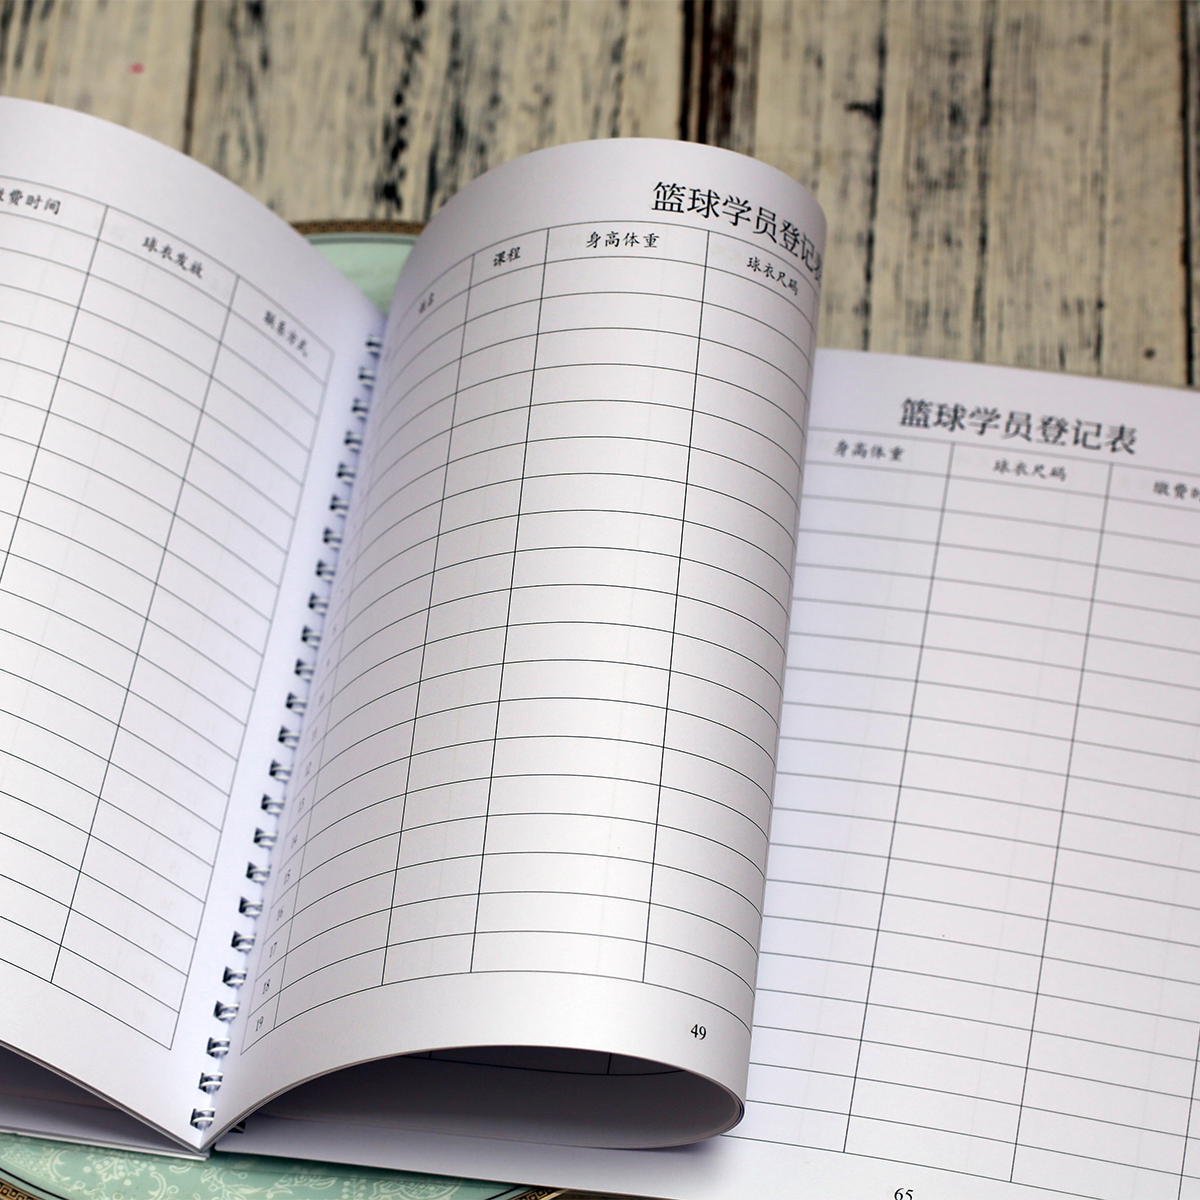 缴费时间
球衣发放
联系方式
篮球学员登记表
姓名
课程
身高体重
球衣尺码
12
13
14
15
16
17
18
19
49
篮球学员登记表
身高体重
球衣尺码
缴费时
65